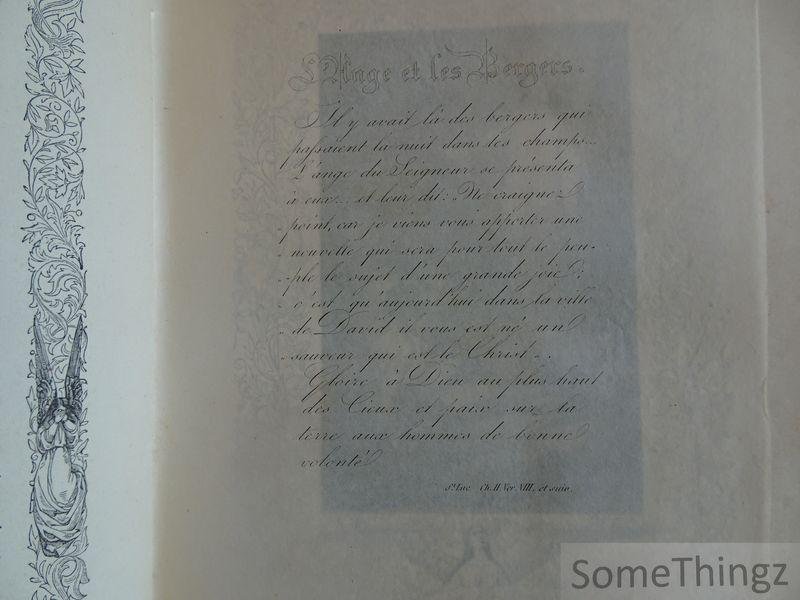 L'Ange et les Bergers.
Il y avait là des bergers qui
passaient la nuit dans les champs...
L'ange du Seigneur se présenta
à eux... et leur dit: Ne craignez
point, car je viens vous apporter une
nouvelle qui sera pour tout le peu-
-ple le sujet d'une grande joie;
c'est qu'aujourd'hui dans la ville
de David il vous est né un
sauveur qui est le Christ...
Gloire à Dieu au plus haut
des Cieux et paix sur la
terre aux hommes de bonne
volonté
St. Luc Ch. II. Ver. VIII. et suiv.
SomeThingz